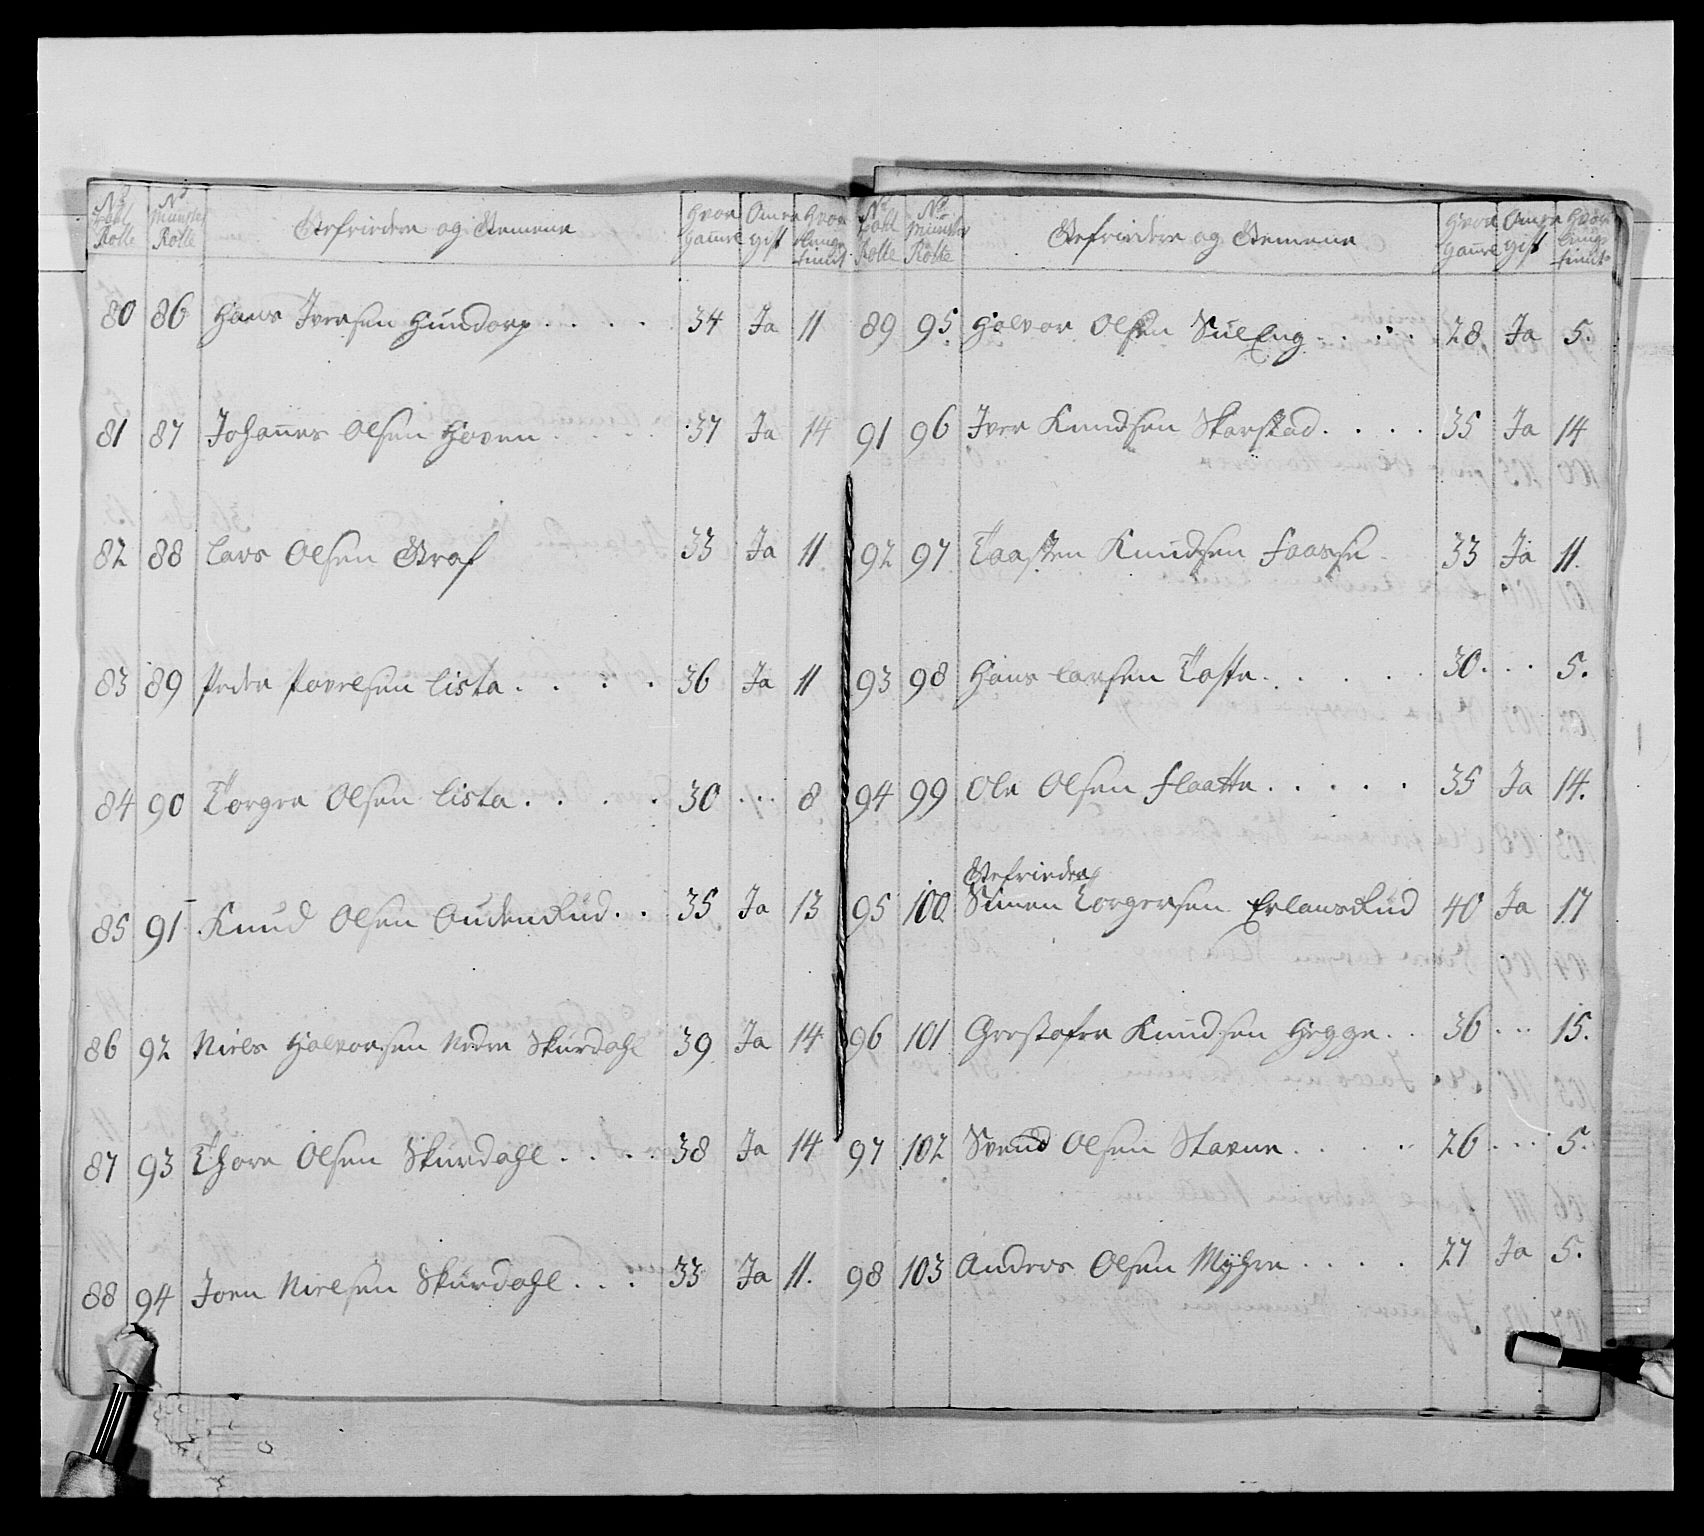 No Tabl Rolle | No Münster Rolle | Gefriedere og Gemene | Hvor Gamle | Om er gift | Hvor lenge tient
80 86 Hans Iversen Hundorp . . . . 34 Ja 11
81 87 Johannes Olsen Hoven . . . . 37 Ja 14
82 88 Lars Olsen Graf 33 Ja 11
83 89 Peder Povelsen Lista . . . . 36 Ja 11
84 90 Torger Olsen Lista . . . . 30 ... 8
85 91 Knud Olsen Audenrud . . 35 Ja 13
86 92 Niels Halvorsen Nedre Skurdahl 39 Ja 14
87 93 Thore Olsen Skurdahl . . . . 38 Ja 14
88 94 Joen Nielsen Skurdahl . . . 33 Ja 11.
No Tabl Rolle | No Münster Rolle | Gefriedere og Gemene | Hvor Gamle | Om er gift | Hvor lenge tient
89 95 Halvor Olsen SulEng . . . . 28 Ja 5.
91 96 Iver Knudsen Skarstad . . . . 35 Ja 14
92 97 Taasten Knudsen Faasse 33 Ja 11.
93 98 Hans Larsen Tofte . . . . . 30 . . . 5.
94 99 Ole Olsen Flaatte . . . . . 35 Ja 14.
Gefrieder
95 100 Simen Torgersen ErlansRud 40 Ja 17
96 101 Grestofer Knudsen Hegge . . 36 ... 15.
97 102 Svend Olsen Stavne . . . . 26 . . . 5.
98 103 Anders Olsen Myhre . . . . 27 Ja 5.